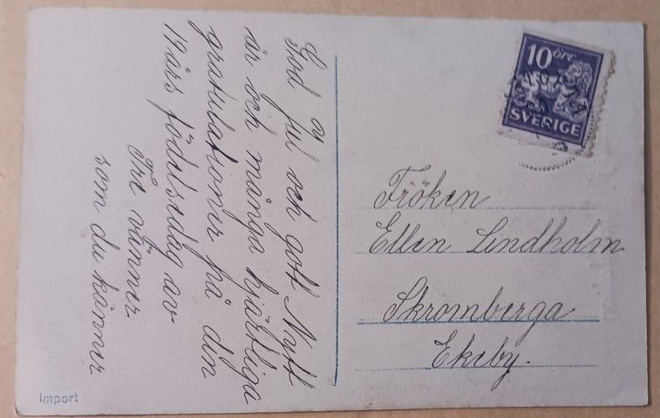 God Jul och gott Nytt
år och många hjärtliga
gratulationer på den
19 års födelsedag av
Tre vänner
som du känner
10 ÖRE
SVERIGE
Fröken
Ellen Lindholm
Skromberga
Ekeby.
Import